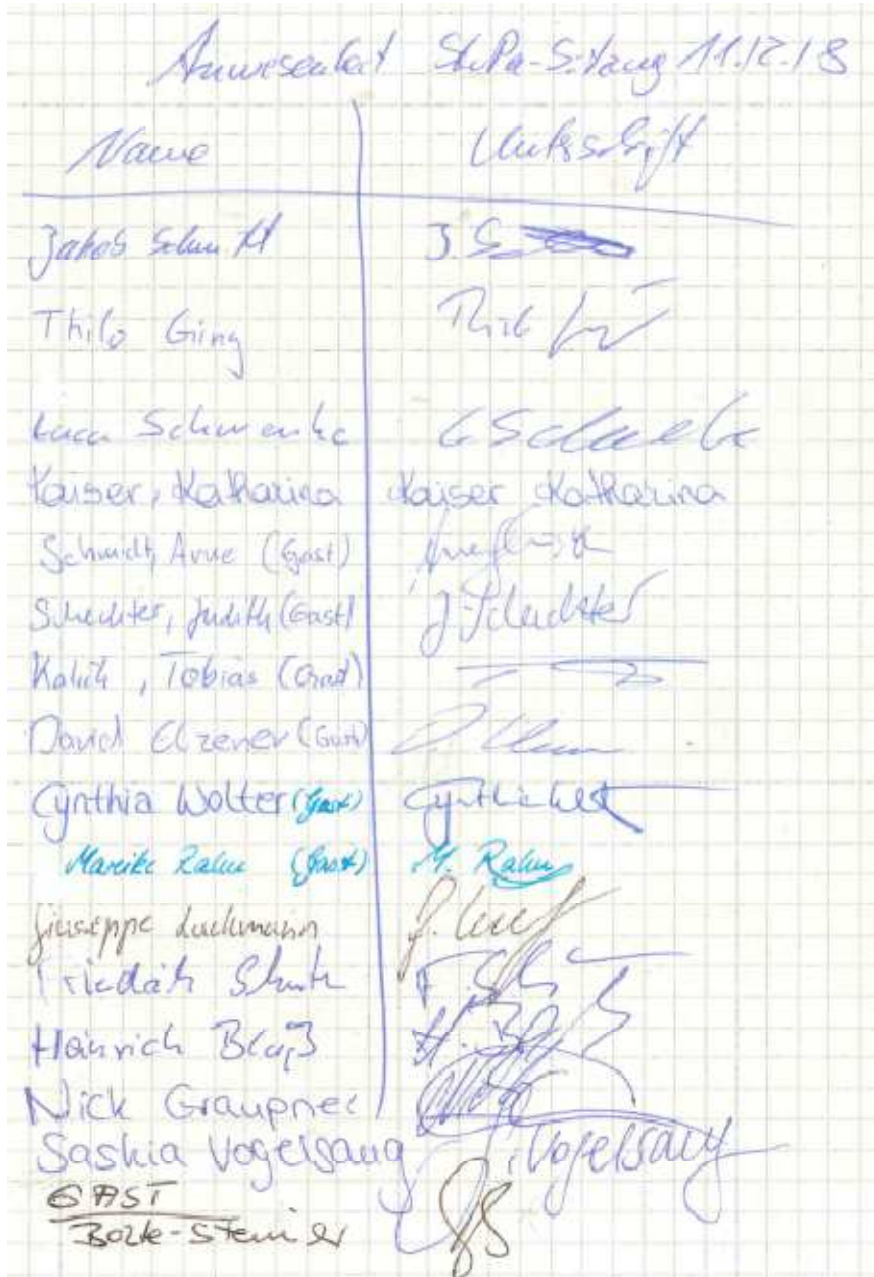 Anwesenheit StuPa-Sitzung 11.12.18
Name Unterschrift
Jakob Schmidt J. S
Thilo Ging Thilo
Luca Schwenke L Schwenke
Kaiser, Katharina Kaiser Katharina
Schmidt, Arne (Gast)
Schechter, Judith (Gast) J. Schechter
Tobias (Gast)
David Elzener (Gast)
Cynthia Wolter (Gast) Cynthia
Mareike Rahn (Gast) M. Rahn
Giuseppe Lachmann
Friedrich
Heinrich Blaß H. Blaß
Nick Graupner
Saskia Vogelsang Vogelsang
GAST